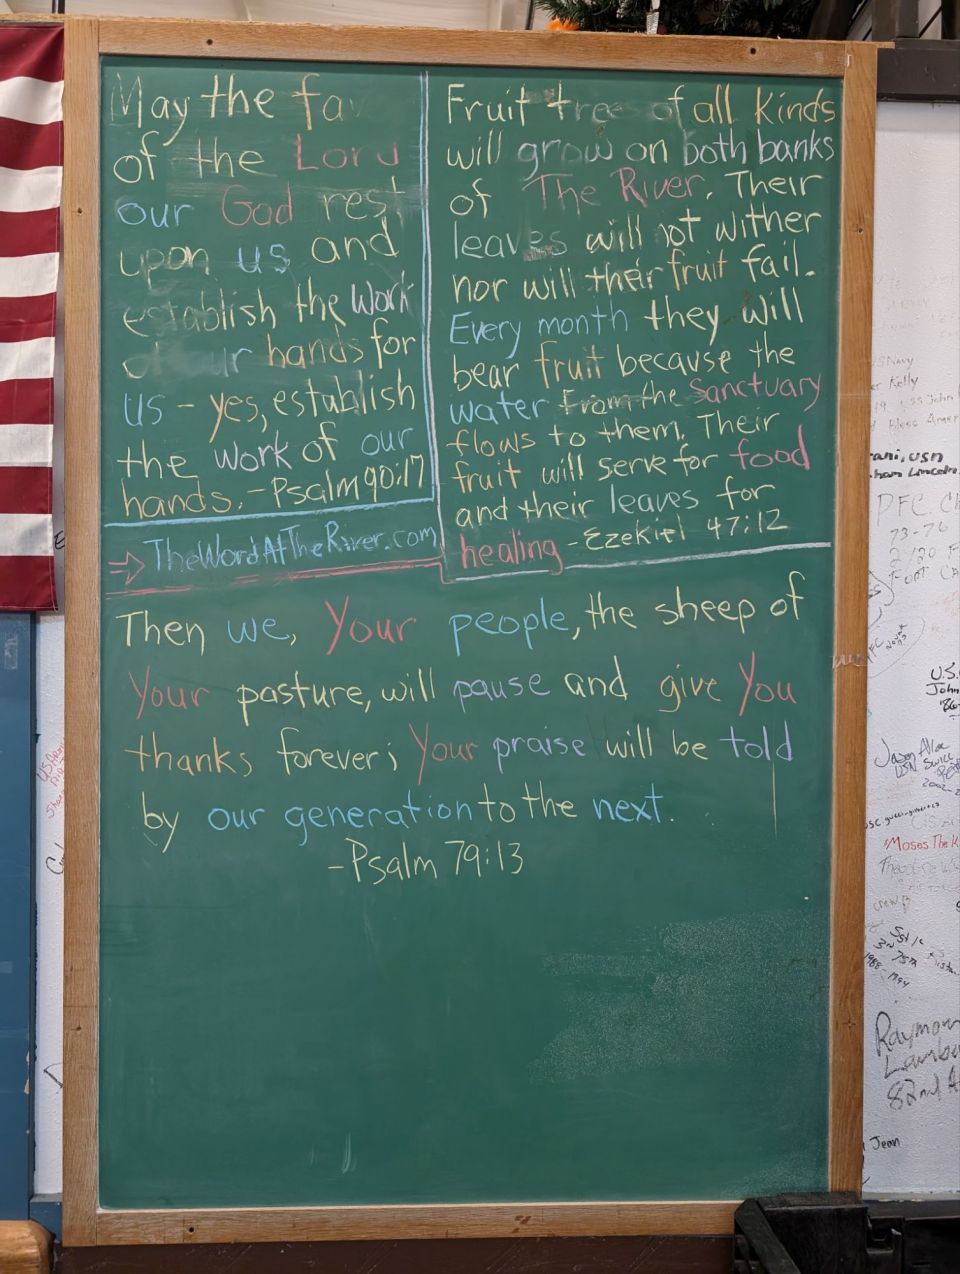 May the fa
of the Lord
our God rest
upon us and
establish the work
our hands for
us - yes, establish
the work of our
hands. - Psalm 90:17
→ TheWordAtTheRiver.com
Fruit tree of all kinds
will grow on both banks
of The River. Their
leaves will not wither
nor will their fruit fail.
Every month they will
bear fruit because the
water from the Sanctuary
flows to them. Their
fruit will serve for food
and their leaves for
healing - Ezekiel 47:12
Then we, Your people, the sheep of
Your pasture, will pause and give You
thanks forever; Your praise will be told
by our generation to the next.
- Psalm 79:13
Kelly
USS John
Bless Amer
ani, USN
ham Lincoln
PFC. Ch
73-76
2/20 F
Fort Ca
U.S.
John
Jason Alle
USN
2002-2
Moses The K
75th
Raymon
Lambe
82nd A
Jean
US Army